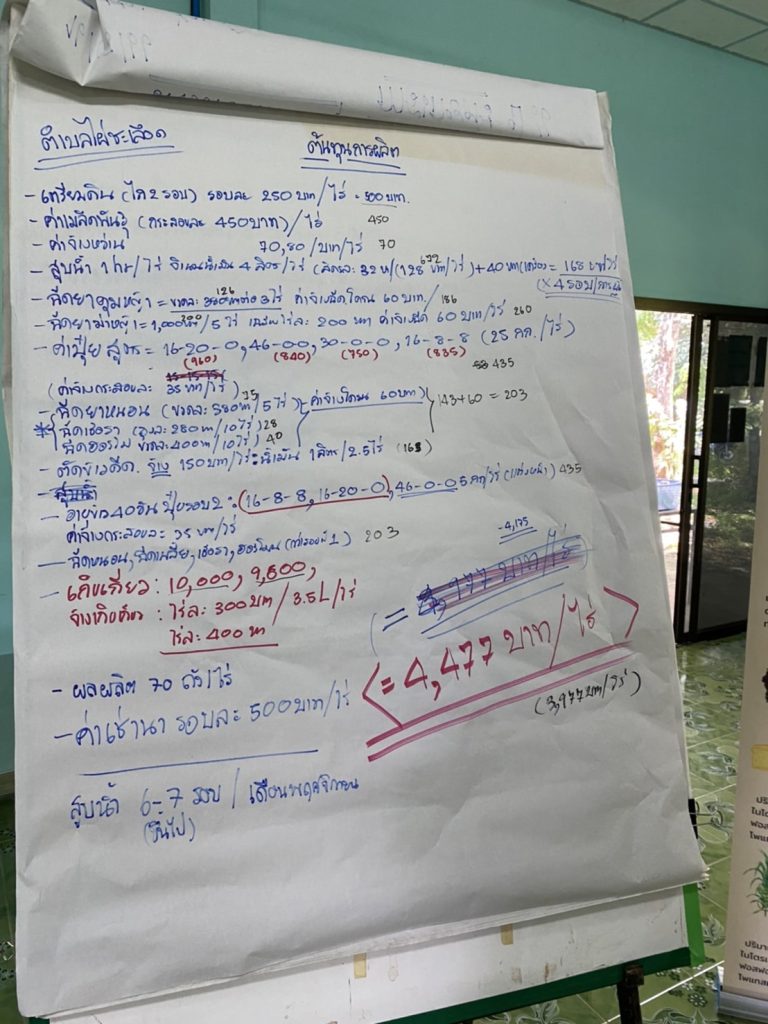 ตำบลไผ่ชะเลือด
ต้นทุนการผลิต
- เตรียมดิน (ไถ 2 รอบ) รอบละ 250 บาท/ไร่ = 500 บาท.
- ค่าเมล็ดพันธุ์ (กระสอบละ 450 บาท) / ไร่ 450
- ค่าจ้างหว่าน 70,80 /บาท/ไร่ 70
- สูบน้ำ 1 /ไร่ 4 ลิตร/ไร่ (ลิตรละ 32 บาท/(128 บาท/ไร่) + 40 บาท = 168 บาท/ไร่
672
(×4 รอบ/
- ฉีดยาคุมหญ้า = ขวดละ 3 ไร่ ค่าจ้างฉีดโดรน 60 บาท/ 186
126
- ฉีดยาฆ่าหญ้า = 1,000 /5 ไร่ เฉลี่ยไร่ละ 200 บาท ค่าจ้างฉีด 60 บาท/ไร่ 260
200
- ค่าปุ๋ย สูตร = 16-20-0, 46-0-0, 30-0-0, 16-8-8 (25 กก./ไร่)
(960) (840) (750) (835)
15-15-15
435
(ค่าจ้างกระสอบละ 35 บาท/ไร่)
- ฉีดยาหนอน (ขวดละ 580 บาท/5 ไร่) (ค่าจ้างโดรน 60 บาท) 143+60 = 203
* ฉีดเชื้อรา ( 280 บาท/10 ไร่) 28
ฉีดฮอร์โมน ขวดละ 400 บาท/10 ไร่) 40
- ตัดข้าวดีด. จ้าง 150 บาท/ไร่ น้ำมัน 1 ลิตร/2.5 ไร่ (163)
- สูบน้ำ
- อายุข้าว 40 วัน ปุ๋ยรอบ 2 : (16-8-8, 16-20-0), 46-0-0 5 กก/ไร่ 435
ค่าจ้างกระสอบละ 35 บาท/ไร่
- ฉีดหนอน, ฉีดเพลี้ย, เชื้อรา, ฮอร์โมน 203
- เก็บเกี่ยว : 10,000, 9,500,
จ้างเก็บเกี่ยว : ไร่ละ 300 บาท / 3.5 L/ไร่
ไร่ละ 400 บาท
- 4,175
(= 977 บาท/ไร่
<= 4,477 บาท/ไร่>
(3,977 บาท/ไร่)
- ผลผลิต 70 ถัง/ไร่
- ค่าเช่านา รอบละ 500 บาท/ไร่
สูบน้ำ 6-7 รอบ / เดือนพฤศจิกายน
(ขึ้นไป)